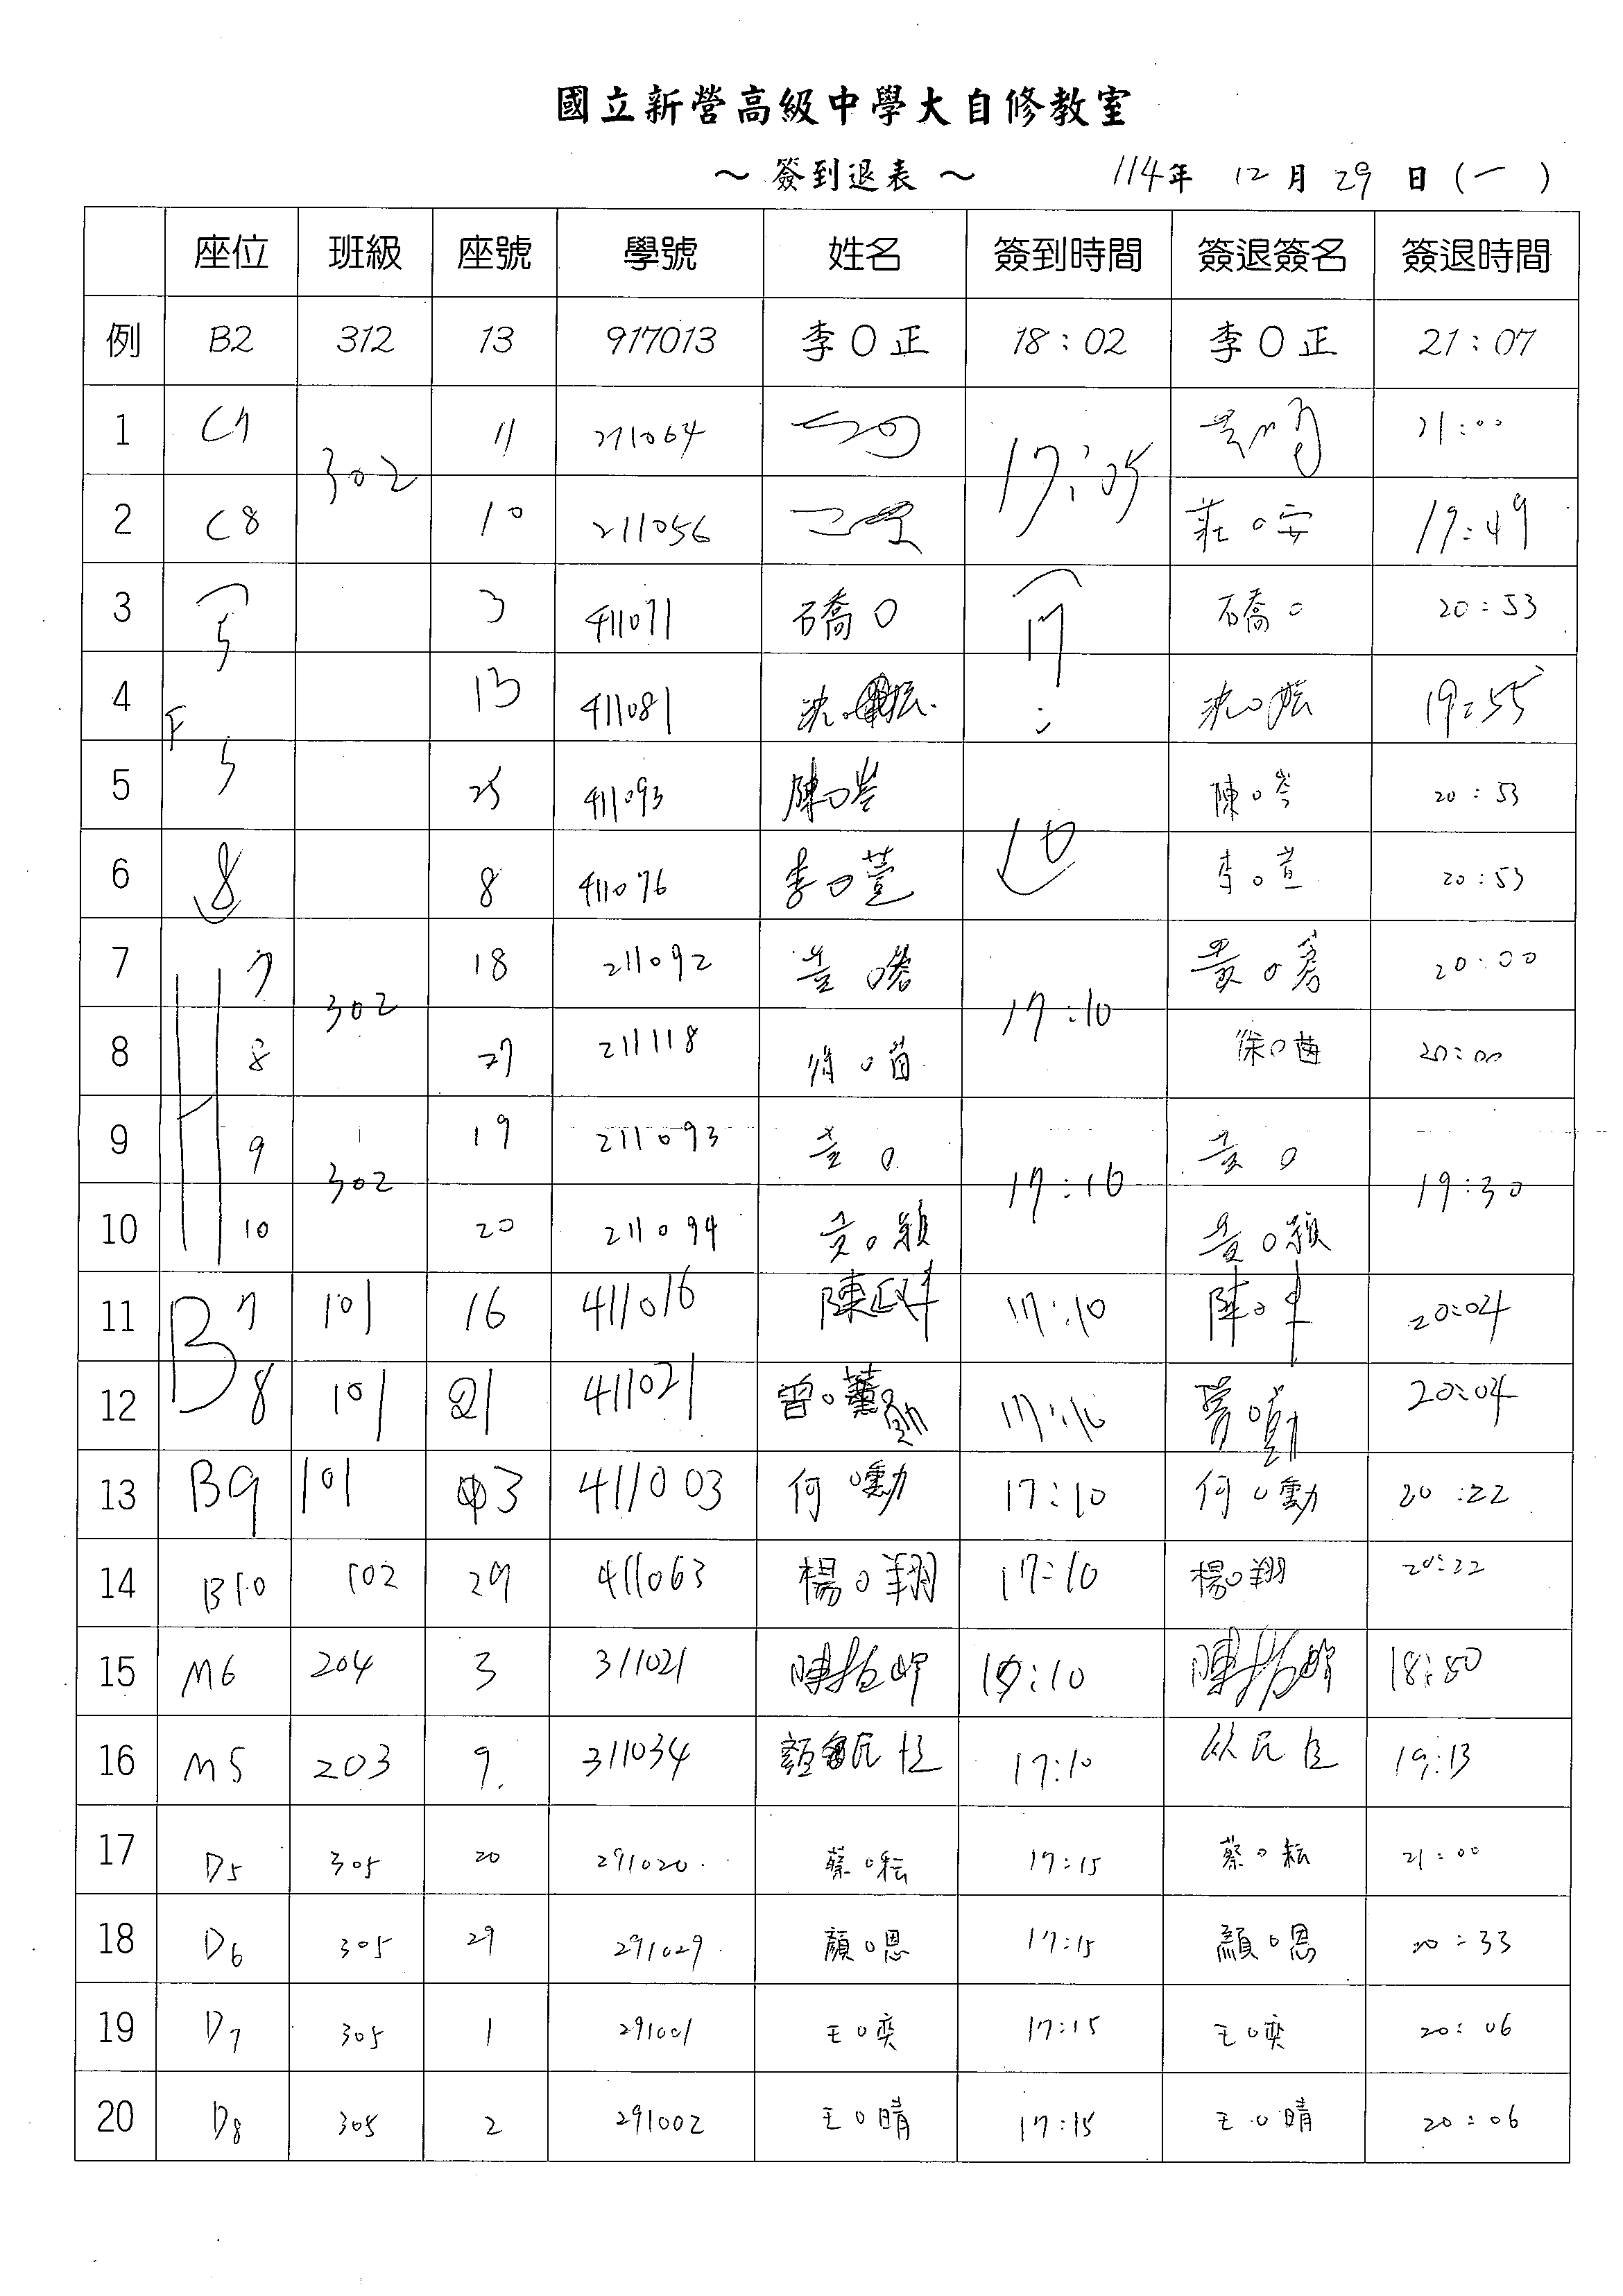 國立新營高級中學大自修教室
～ 簽到退表 ～ 114年 12月 29日(一)
座位 班級 座號 學號 姓名 簽到時間 簽退簽名 簽退時間
例 B2 312 13 917013 李O正 18:02 李O正 21:07
1 C7 302 11 271064 17:05 21:00
2 C8 10 211056 莊O安 19:49
3 5 3 411071 石喬O 17:10 石喬O 20:53
4 F 13 411081 沈 沈O 19:55
5 5 25 411093 陳O岑 陳O岑 20:53
6 8 8 411076 李O萱 李O萱 20:53
7 H 7 302 18 211092 黃O 17:10 黃O 20:00
8 8 27 211118 徐O茵 徐O茵 20:00
9 H 9 302 19 211093 黃O 17:10 黃O 19:30
10 10 20 211094 黃O穎 黃O穎
11 B 7 101 16 411016 陳 17:10 陳O 20:04
12 8 101 21 411021 曾O勛 17:10 20:04
13 B9 101 3 411003 何O勳 17:10 何O勳 20:22
14 B10 102 29 411063 楊O翔 17:10 楊O翔 20:22
15 M6 204 3 311021 陳 17:10 陳 18:50
16 M5 203 9. 311034 顏 民 17:10 民 19:13
17 D5 305 20 291020 蔡O耘 17:15 蔡O耘 21:00
18 D6 305 29 291029 顏O恩 17:15 顏O恩 20:33
19 D7 305 1 291001 王O奕 17:15 王O奕 20:06
20 D8 305 2 291002 王O晴 17:15 王O晴 20:06